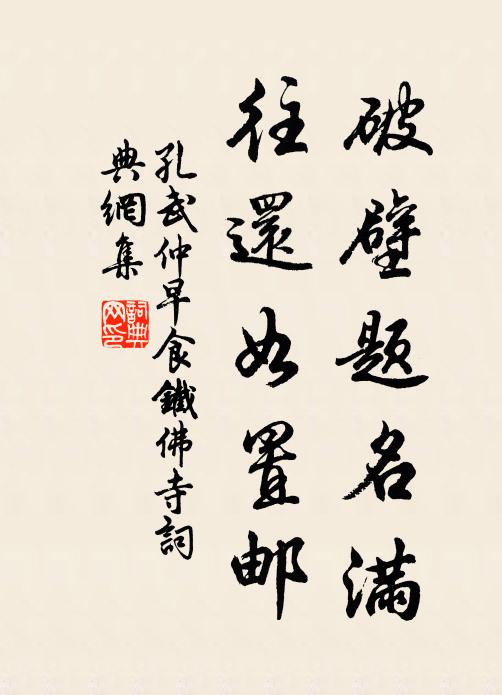 破壁题名满
往還如置邮
孔武仲早食鐵佛寺詞
典網集
詞典
网印